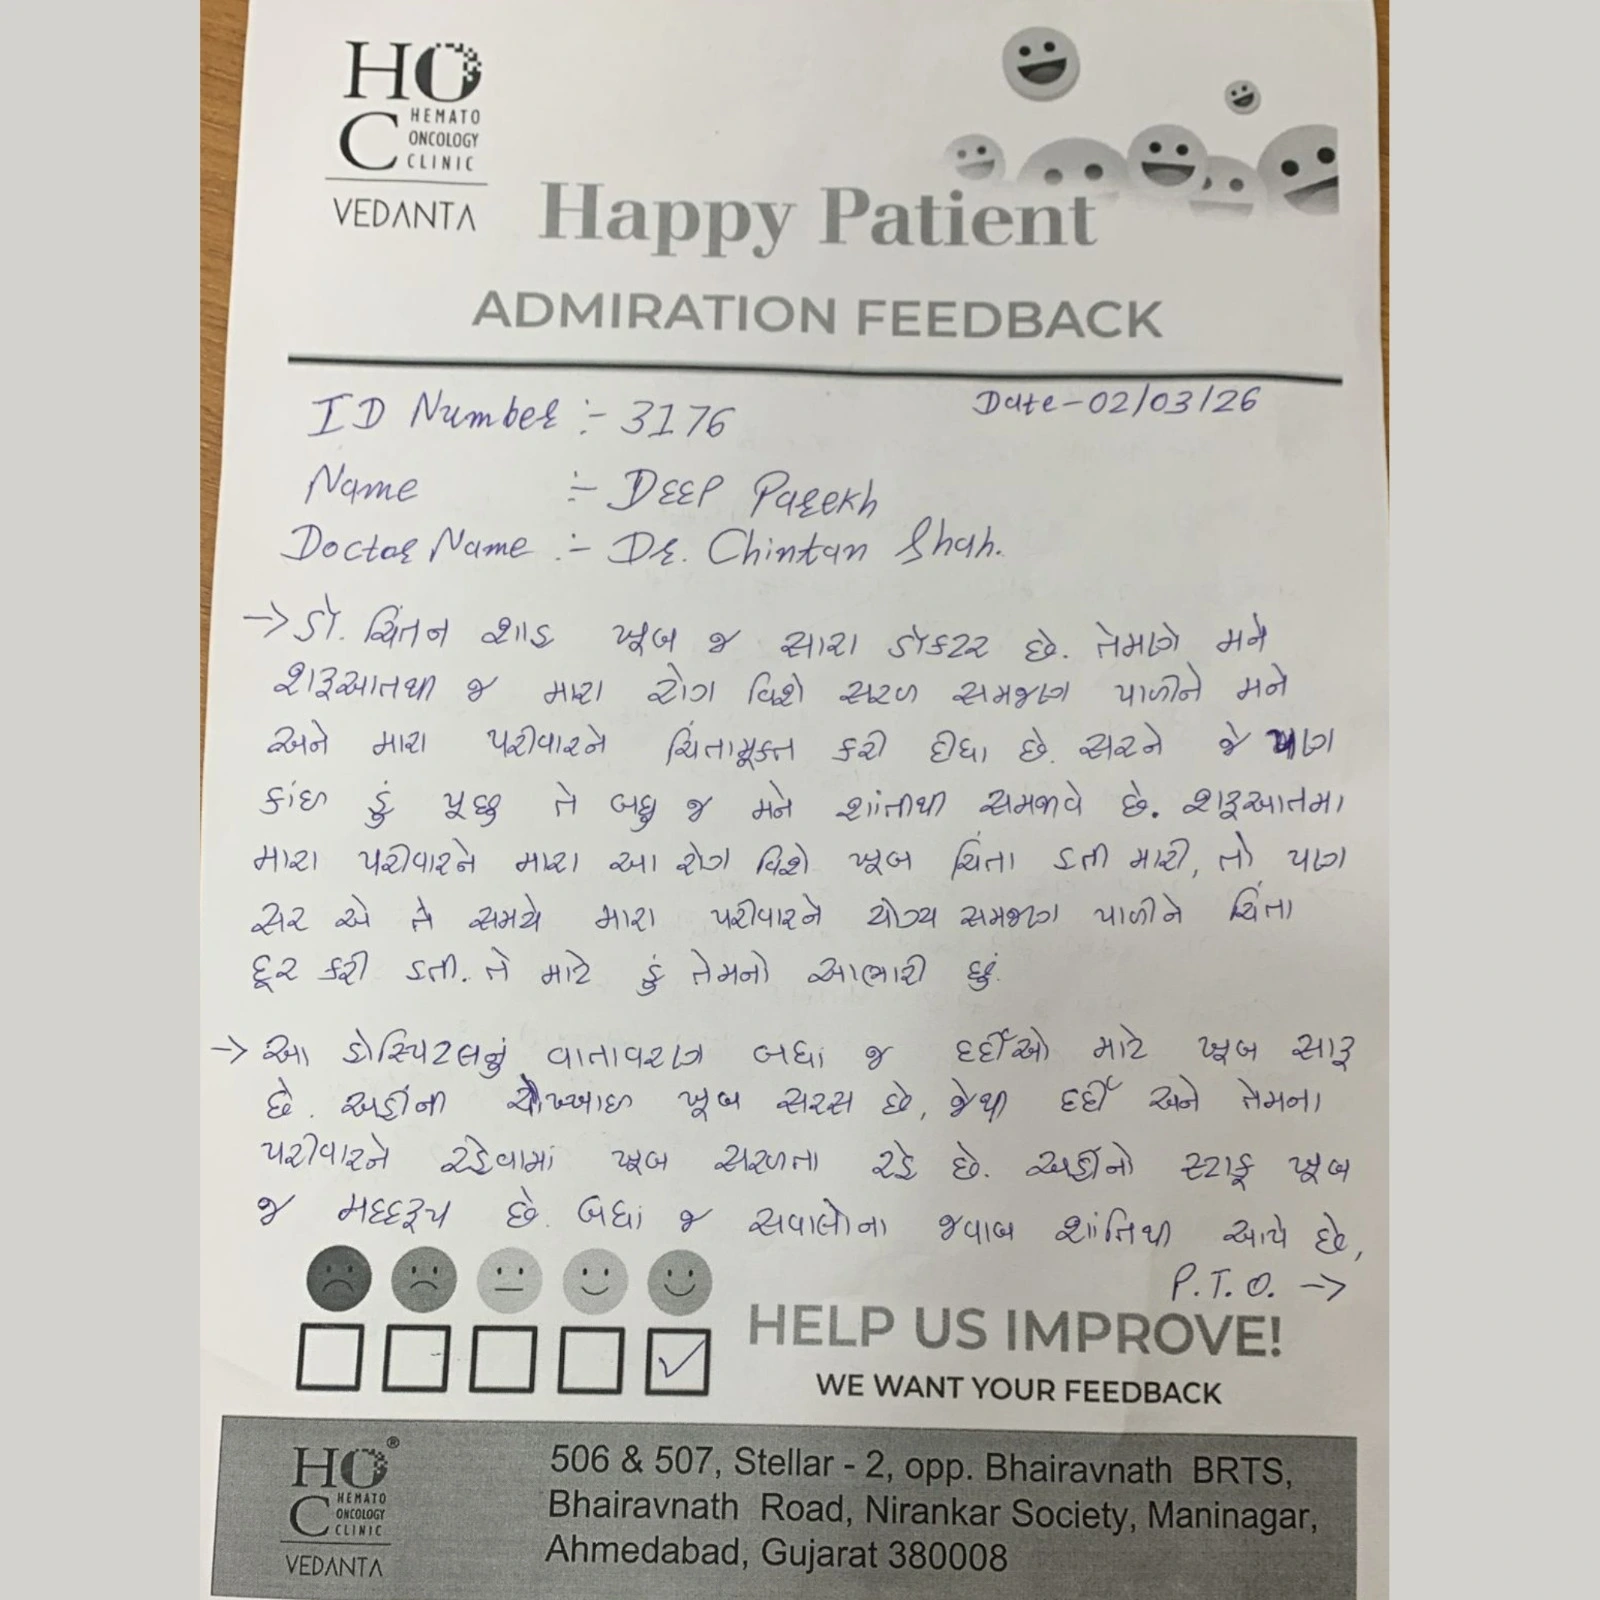 HOC
HEMATO
ONCOLOGY
CLINIC
VEDANTA
Happy Patient
ADMIRATION FEEDBACK
ID Number :- 3176
Date-02/03/26
Name :- DEEP Parekh
Doctor Name :- Dr. Chintan Shah.
→ ડૉ. ચિંતન શાહ ખૂબ જ સારા ડૉક્ટર છે. તેમણે મને
શરૂઆતથી જ મારા રોગ વિશે સરળ સમજણ પાળીને મને
અને મારા પરીવારને ચિંતામૂક્ત કરી દીધા છે. સરને જે પણ
કાંઇ હું પૂછુ તે બધુ જ મને શાંતીથી સમજાવે છે. શરૂઆતમા
મારા પરીવારને મારા આ રોગ વિશે ખૂબ ચિંતા હતી મારી, તો પણ
સર એ તે સમયે મારા પરીવારને યોગ્ય સમજણ પાળીને ચિંતા
દૂર કરી હતી. તે માટે હું તેમનો આભારી છું.
→ આ હોસ્પિટલનું વાતાવરણ બધાં જ દર્દીઓ માટે ખૂબ સારૂ
છે. અહીંની ચોખ્ખાઇ ખૂબ સરસ છે, જેથી દર્દી અને તેમના
પરીવારને રહેવામાં ખૂબ સરળતા રહે છે. અહીંનો સ્ટાફ ખૂબ
જ મદદરૂપ છે. બધાં જ સવાલોના જવાબ શાંતિથી આપે છે,
P.T.O. →
HELP US IMPROVE!
WE WANT YOUR FEEDBACK
HOC®
HEMATO
ONCOLOGY
CLINIC
VEDANTA
506 & 507, Stellar - 2, opp. Bhairavnath BRTS,
Bhairavnath Road, Nirankar Society, Maninagar,
Ahmedabad, Gujarat 380008